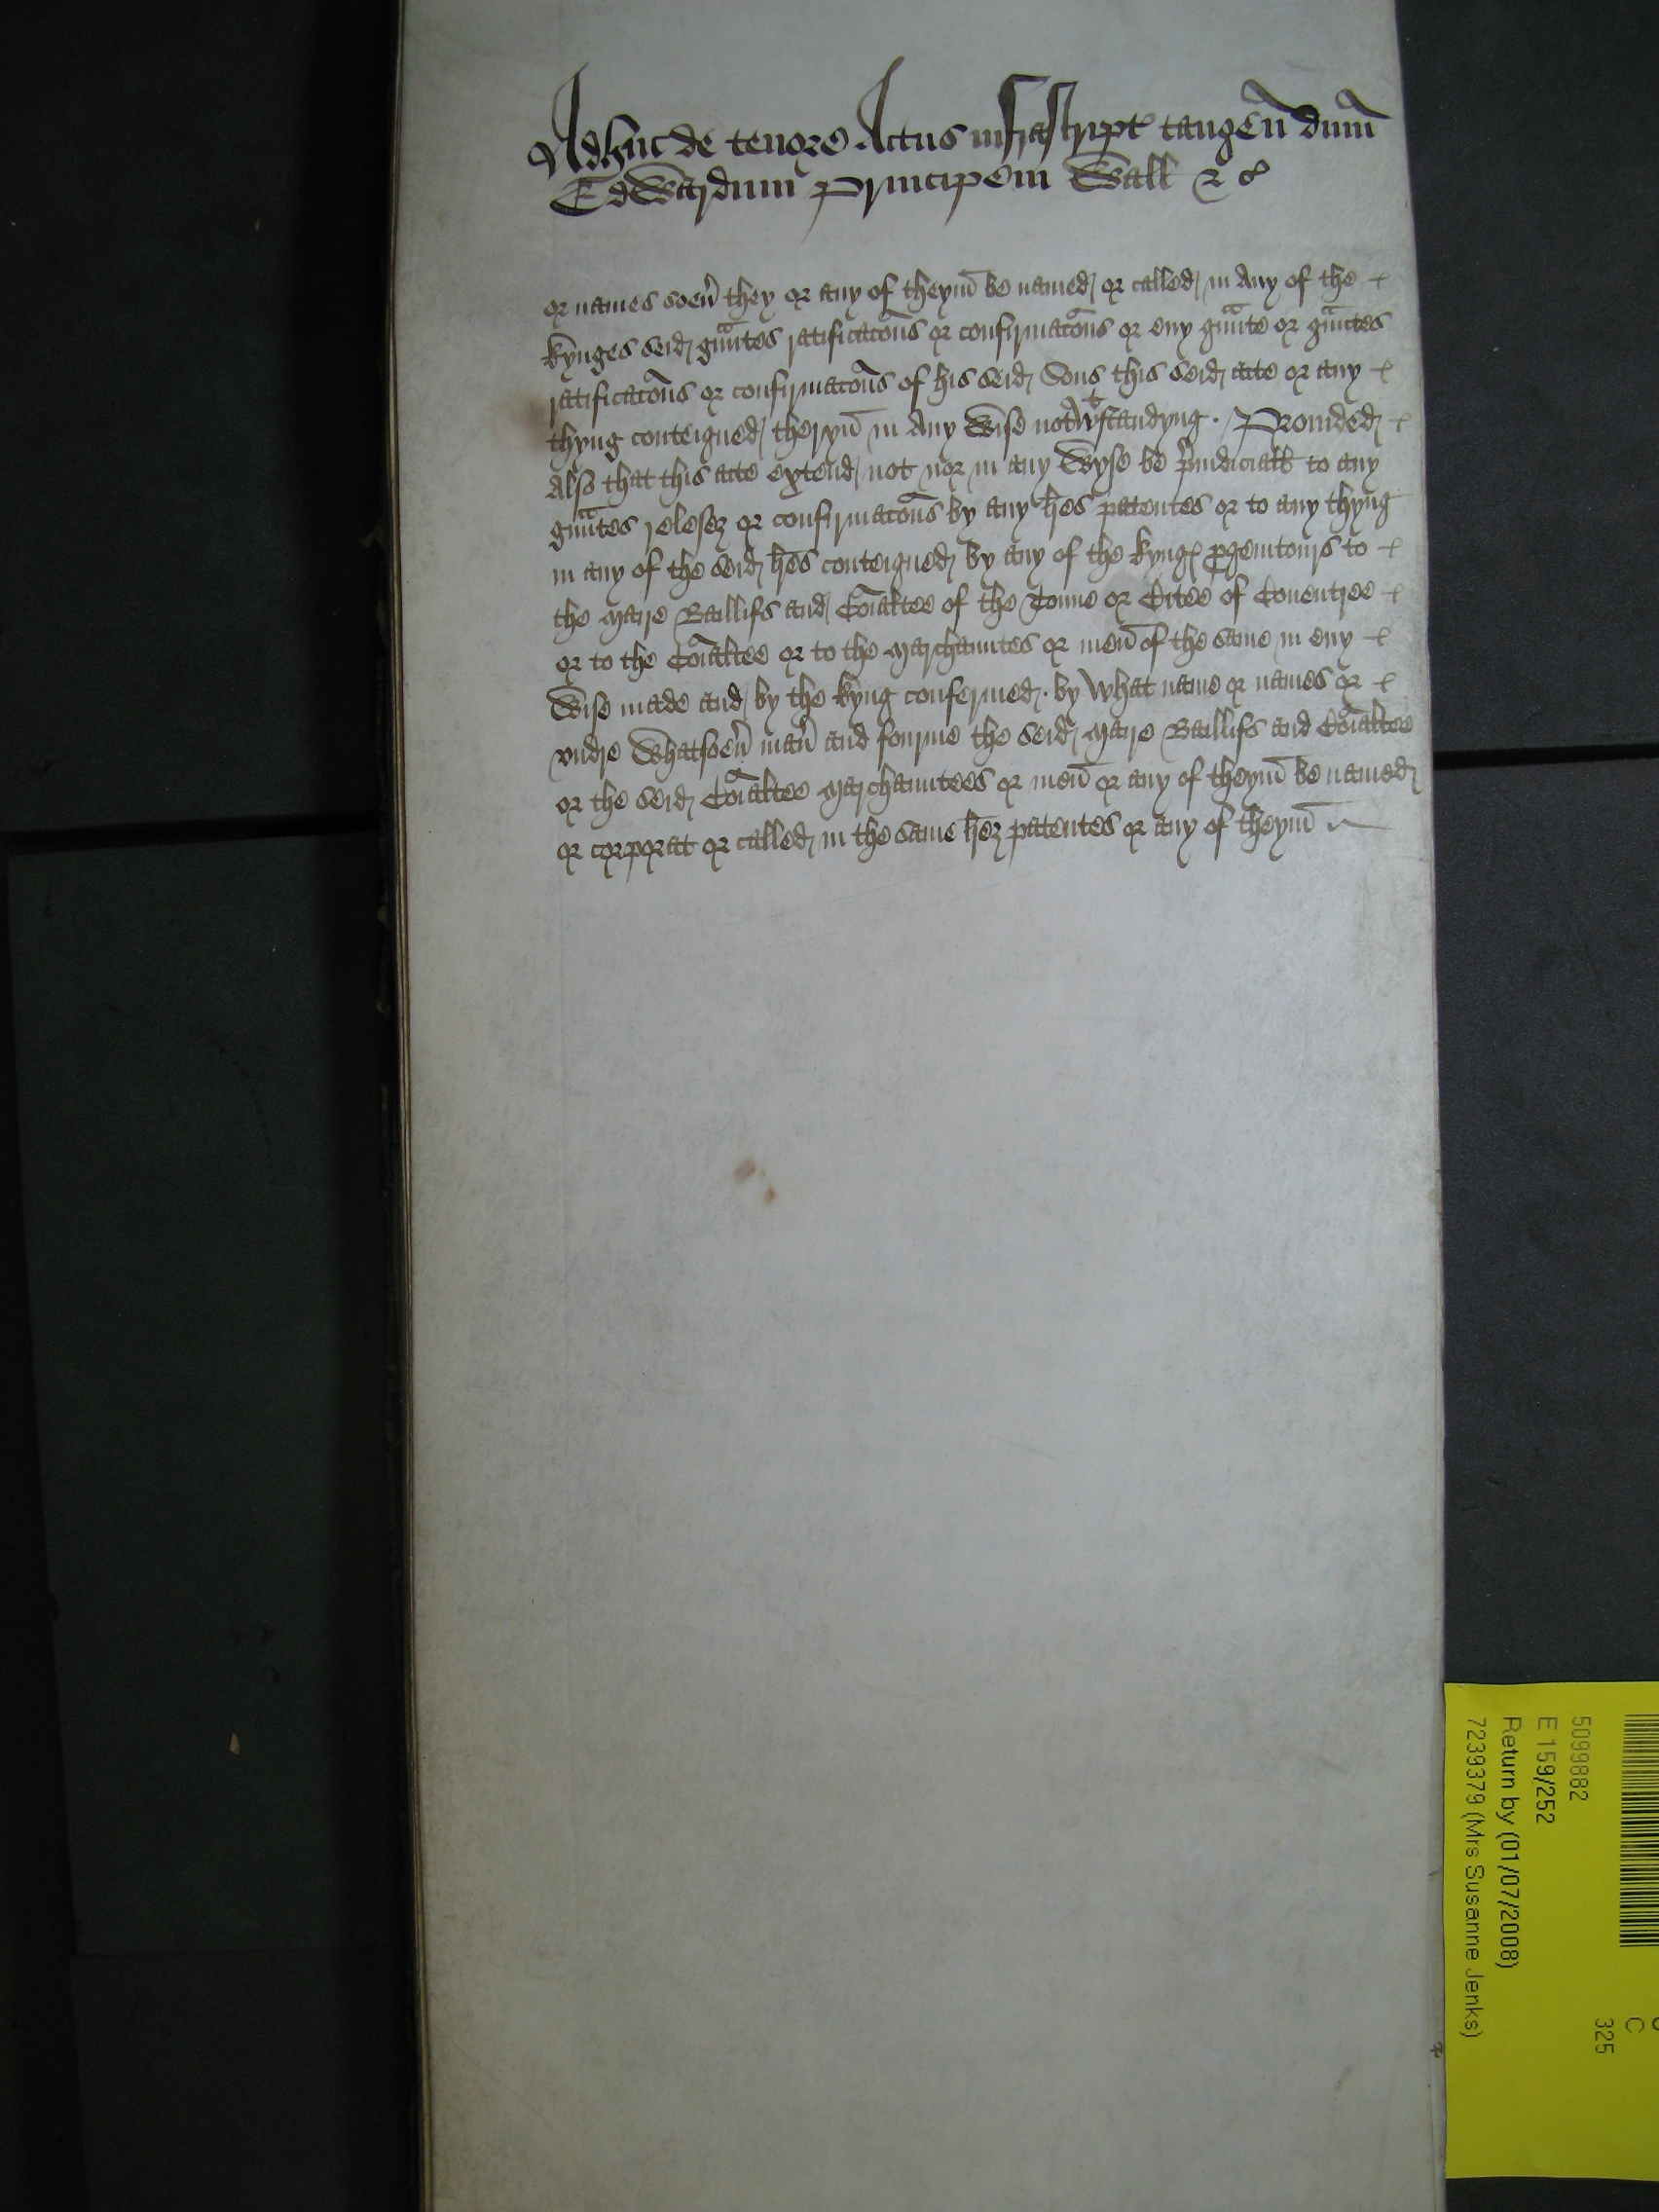 Adhuc de tenore Actus infrascript tangen̄ dum̄
Edwardum Principem Wall &c
or names soeu̓ they or any of theym̄ be named or called in Any of the
kynges seid gͣuntes ratificacōns or confirmacōns or eny gͣunte or gͣuntes
ratificacōns or confirmacōns of his seid Sons this seid acte or any
thyng conteigned theryn̄ in Any Wise notwᵗstandyng . Prouided
Also that this acte extend not nor in any Wyse be p̓iudiciall to any
gͣuntes relesez or confirmacōns by any lr̄es patentes or to any thyng
in any of the seid lr̄es conteigned by any of the kyngꝭ ꝓgenitours to
the Maire Baillifs and Cōīaltee of the Toune or Citee of Couentree
or to the Cōīaltee or to the Marchauntes or men̄ of the same in eny
Wise made and by the kyng confermed . by What name or names or
vndre Whatsoeu̓ man̓ and fourme the seid Maire Baillifs and Cōīaltee
or the seid Cōīaltee Marchauntees or men̄ or any of theym̄ be named
or corporat or called in the same lr̄ez patentes or any of theym̄
5099882
E 159/252
Return by (01/07/2008)
7239379 (Mrs Susanne Jenks)
C
325